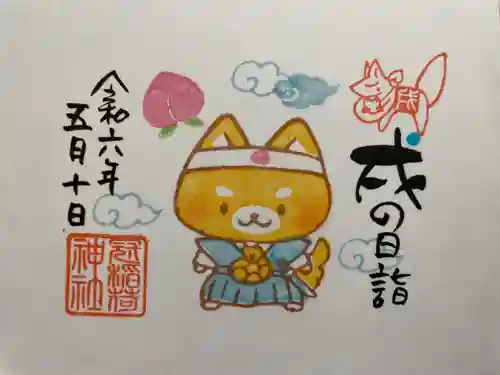 戌の日詣
戌
令和六年
五月十日
冠稲荷
神社